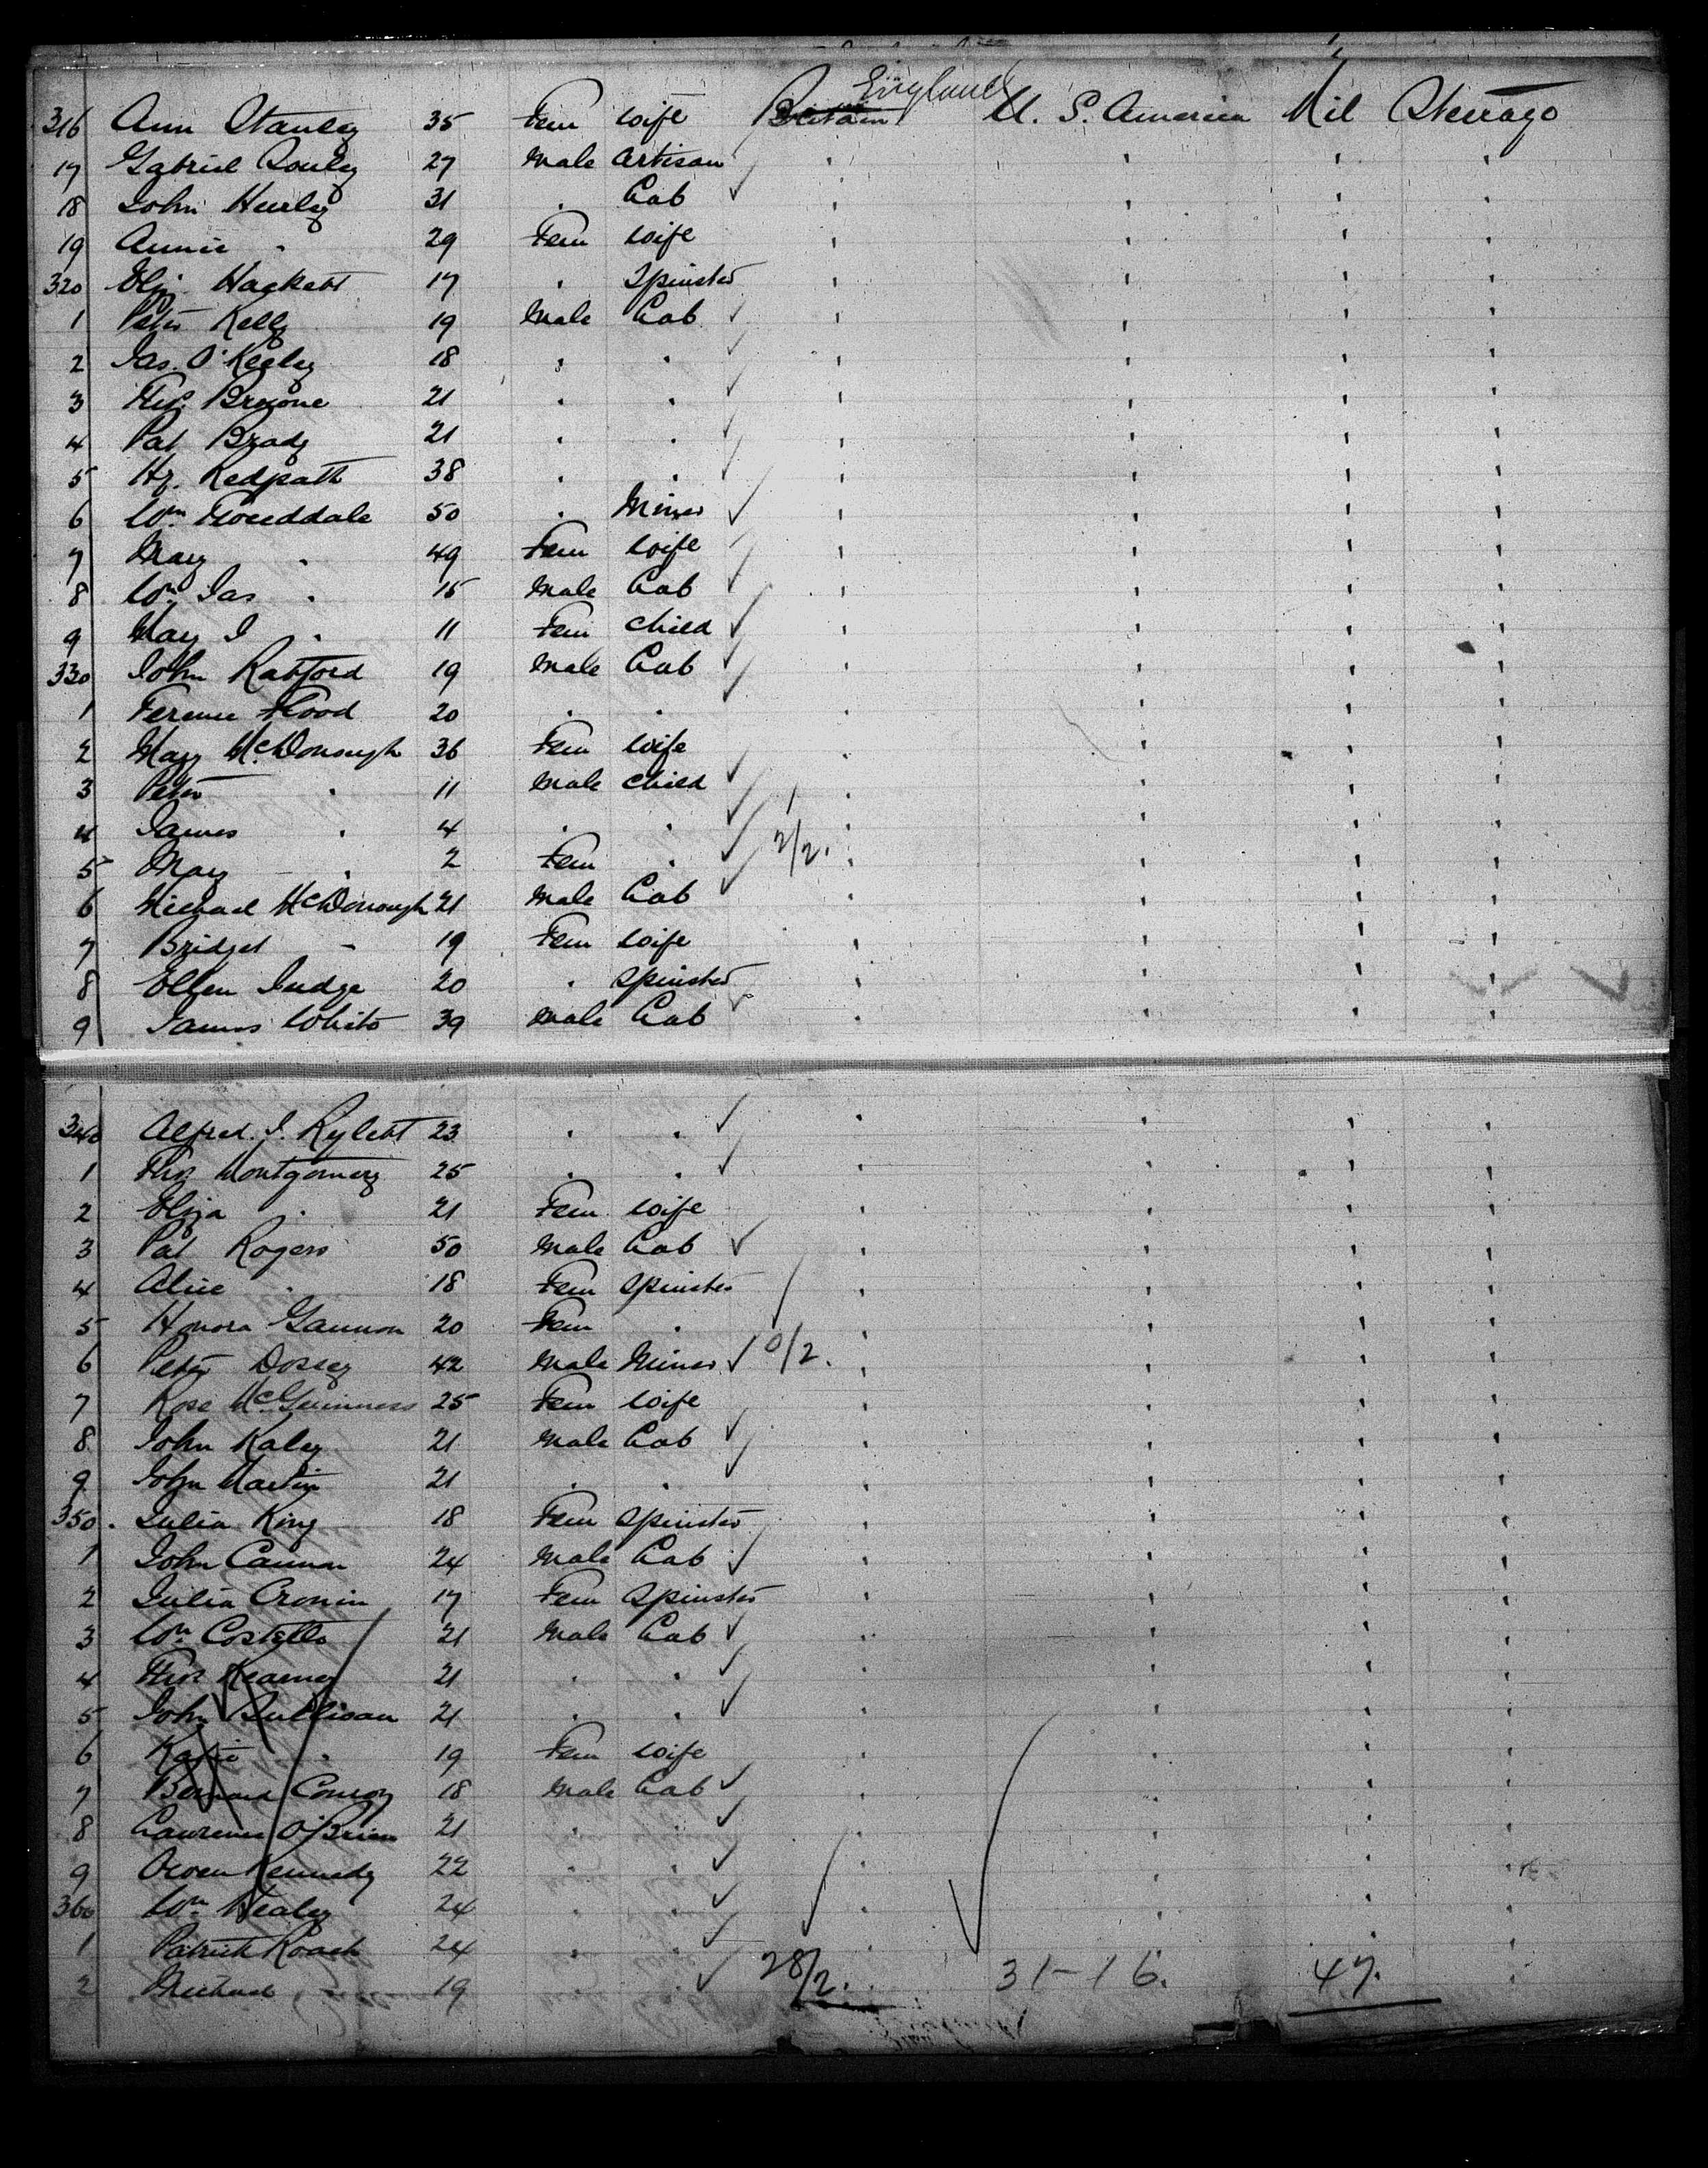 England
316 Ann Stanley 35 Fem Wife Britain U. S. America Nil Steerage
17 Gabriel 27 Male Artisan " " " "
18 John Hurley 31 " Lab " " " "
19 Annie " 29 Fem Wife " " " "
320 Eliz. Hackett 17 " Spinster " " " "
1 Peter Kelly 19 Male Lab " " " "
2 Jas. O'Keeley 18 " " " " " "
3 Thos. Browne 21 " " " " " "
4 Pat Brady 21 " " " " " "
5 Hy. Redpath 38 " " " " " "
6 Wm. 50 " Miner " " " "
7 Mary " 49 Fem Wife " " " "
8 Wm. Jas " 15 Male Lab " " " "
9 Mary J " 11 Fem Child " " " "
330 John Ratford 19 Male Lab " " " "
1 Terence Flood 20 " " " " " "
2 Mary McDonough 36 Fem Wife " " " "
3 Peter " 11 Male Child " " " "
4 James " 4 " " " " " "
2/2.
5 Mary " 2 Fem " " " " "
6 Michael McDonough 21 Male Lab " " " "
7 Bridget " 19 Fem Wife " " " "
8 Ellen Judge 20 " Spinster " " " "
9 James White 39 Male Lab " " " "
340 Alfred. J. Rylett 23 " " " " " "
1 Thos Montgomery 25 " " " " " "
2 Eliza " 21 Fem Wife " " " "
3 Pat Rogers 50 Male Lab " " " "
4 Alice " 18 Fem Spinster " " " "
5 Honora Gannon 20 Fem " " " " "
6 Peter Dorsey 42 Male Miner 10/2. " " " "
7 Rose McGuinness 25 Fem Wife " " " "
8 John Kaley 21 Male Lab " " " "
9 John Martin 21 " " " " " "
350 Julia King 18 Fem Spinster " " " "
1 John Cannon 24 Male Lab " " " "
2 Julia Cronin 17 Fem Spinster " " " "
3 Wm. Costello 21 Male Lab " " " "
4 Thos Kearney 21 " " " " " "
5 John Sullivan 21 " " " " " "
6 Katie " 19 Fem Wife " " " "
7 Bernard Conroy 18 Male Lab " " " "
8 Lawrence O'Brien 21 " " " " " "
9 Owen Kennedy 22 " " " " " "
360 Wm. Healey 24 " " " " " "
1 Patrick Roach 24 " " " " " "
28/2. 31-16. 47.
2 Michael " 19 " "